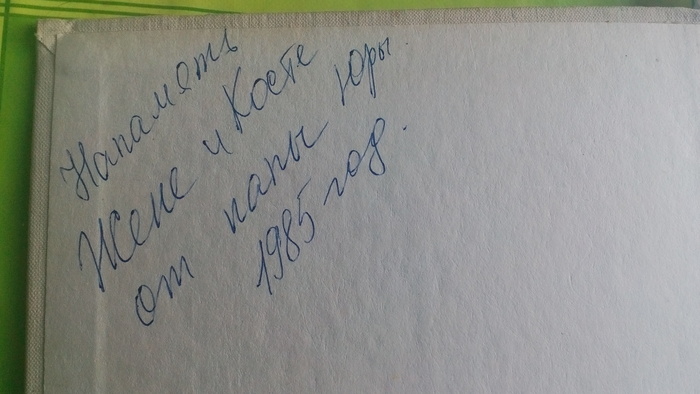 Напамять
Жене и Косте
от папы Юры
1985 год.